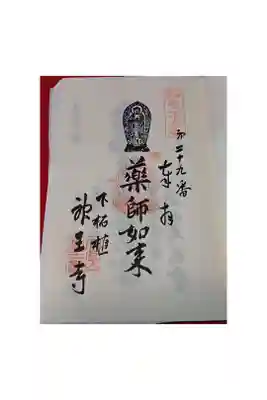 第二十九番
奉拝
薬師如来
下柘植
神王寺